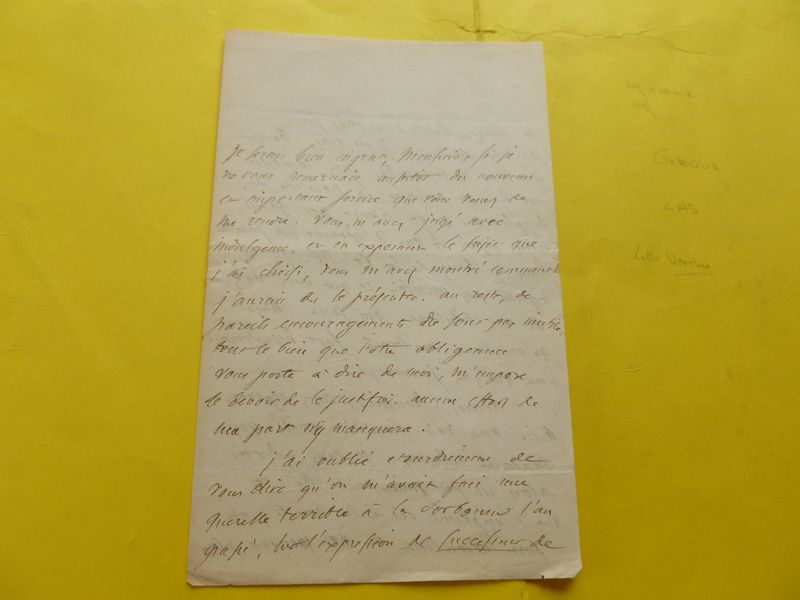 Je serais bien ingrat, Monsieur, si je
ne vous remerciais aussitôt du nouveau
et important service que vous venez de
me rendre. Vous m'avez jugé avec
indulgence, et en exposant le sujet que
j'ai choisi, vous m'avez montré comment
j'aurais dû le présenter. au reste, de
pareils encouragements ne sont pas inutiles.
tout le bien que votre obligeance
vous porte à dire de moi, m'impose
le devoir de le justifier. aucun effort de
ma part n'y manquera.
j'ai oublié de
vous dire qu'on m'avait fait une
querelle terrible à la Sorbonne l'an
passé, sur l'expression de successeurs de
LAS